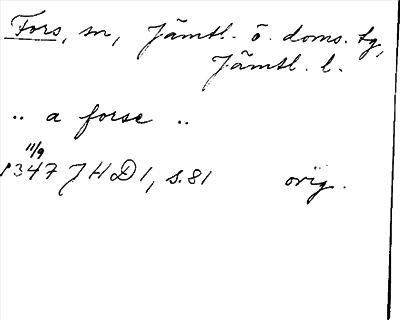 Fors, sn, Jämtl. ö. doms. tg,
Jämtl. l.
.. a forse ..
11/9
1347 JHD1, s. 81 orig.